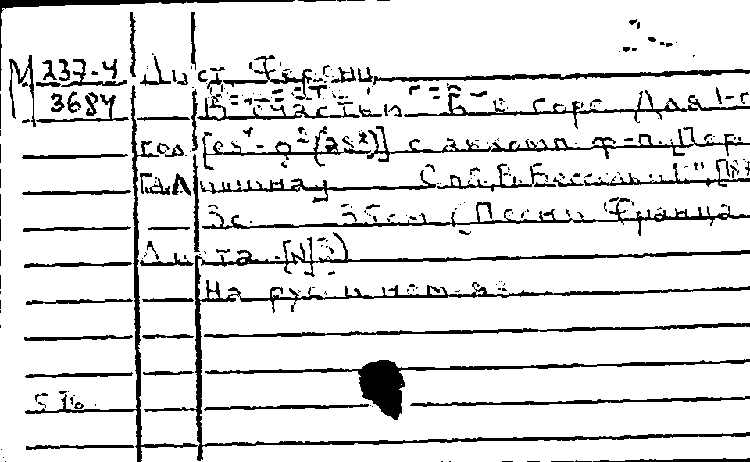 М 237-4 Лист Ференц
3684 В счастьи и в горе. Для 1-г
гол [es¹-g²(as²)] с аккомп. ф-п. [Пер
Спб, В. Бессель и К°", [18
3с. 35см (Песни Франца
Листа [N]3)
На рус и нем. яз